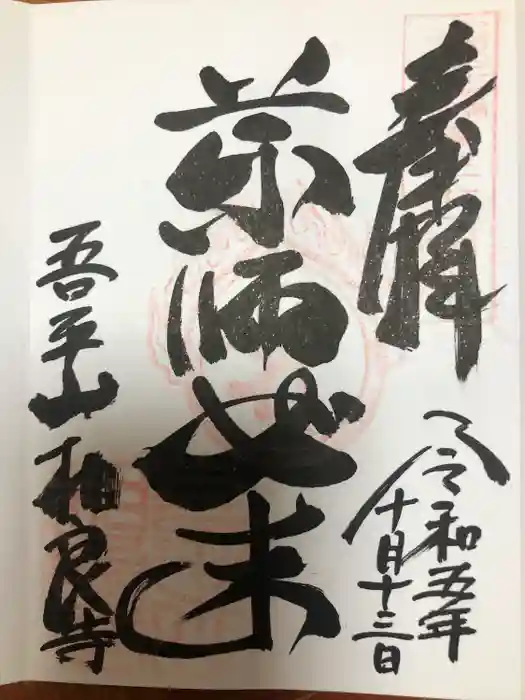 奉拝
令和五年
十月十三日
薬師如来
吾平山 相良寺